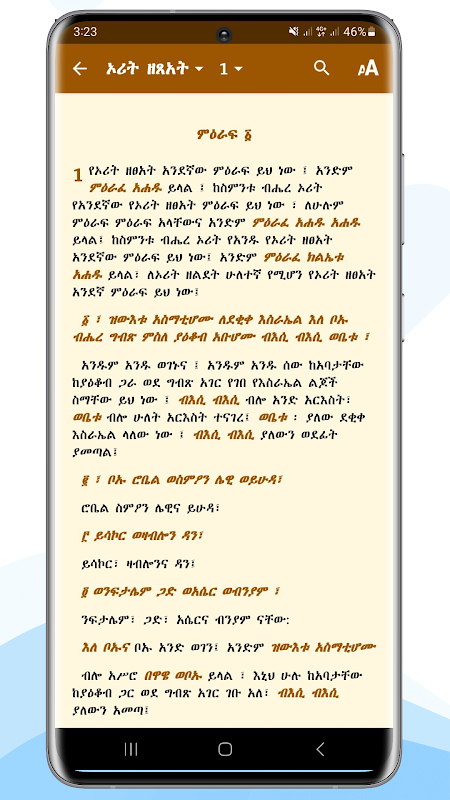 3:23
46%
ኦሪት ዘጸአት
1
አA
ምዕራፍ ፩
1 የኦሪት ዘፀአት አንደኛው ምዕራፍ ይህ ነው ፤ አንድም
ምዕራፈ አሐዱ ይላል ፤ ከስምንቱ ብሔረ ኦሪት
የአንደኛው የኦሪት ዘፀአት ምዕራፍ ይህ ነው ፤ ለሁሉም
ምዕራፍ ምዕራፍ አላቸውና አንድም ምዕራፈ አሐዱ አሐዱ
ይላል፤ ከስምንቱ ብሔረ ኦሪት የአንዱ የኦሪት ዘፀአት
አንደኛው ምዕራፍ ይህ ነው፤ አንድም ምዕራፈ ክልኤቱ
አሐዱ ይላል፣ ለኦሪት ዘልደት ሁለተኛ የሚሆን የኦሪት ዘፀአት
አንደኛ ምዕራፍ ይህ ነው፤
፩ ፤ ዝውእቱ አስማቲሆሙ ለደቂቀ እስራኤል እለ ቦኡ
ብሔረ ግብጽ ምስለ ያዕቆብ አቡሆሙ ብእሲ ብእሲ ወቤቱ ፤
አንዱም አንዱ ወገኑና ፤ አንዱም አንዱ ሰው ከአባታቸው
ከያዕቆብ ጋራ ወደ ግብጽ አገር የገቡ የእስራኤል ልጆች
ስማቸው ይህ ነው ፤ ብእሲ ብእሲ ብሎ አንድ አርእስት፣
ወቤቱ ብሎ ሁለት አርእስት ተናገረ፤ ወቤቱ ፡ ያለው ደቂቀ
እስራኤል ላለው ነው ፤ ብእሲ ብእሲ ያለውን ወደፊት
ያመጣል፤
፪ ፤ ቦኡ ሮቤል ወስምዖን ሌዊ ወይሁዳ፣
ሮቤል ስምዖን ሌዊና ይሁዳ፣
፫ ይሳኮር ወዛብሎን ዳን፣
ይሳኮር፣ ዛብሎንና ዳን፤
፬ ወንፍታሌም ጋድ ወአሴር ወብንያም ፤
ንፍታሌም፣ ጋድ፣ አሴርና ብንያም ናቸው:
እለ ቦኡና ቦኡ አንድ ወገን፤ አንድም ዝውእቱ አስማቲሆሙ
ብሎ አሥሮ በዋዌ ወቦኡ ይላል ፤ እኒህ ሁሉ ከአባታቸው
ከያዕቆብ ጋር ወደ ግብጽ አገር ገቡ አለ፣ ብእሲ ብእሲ
ያለውን አመጣ፤